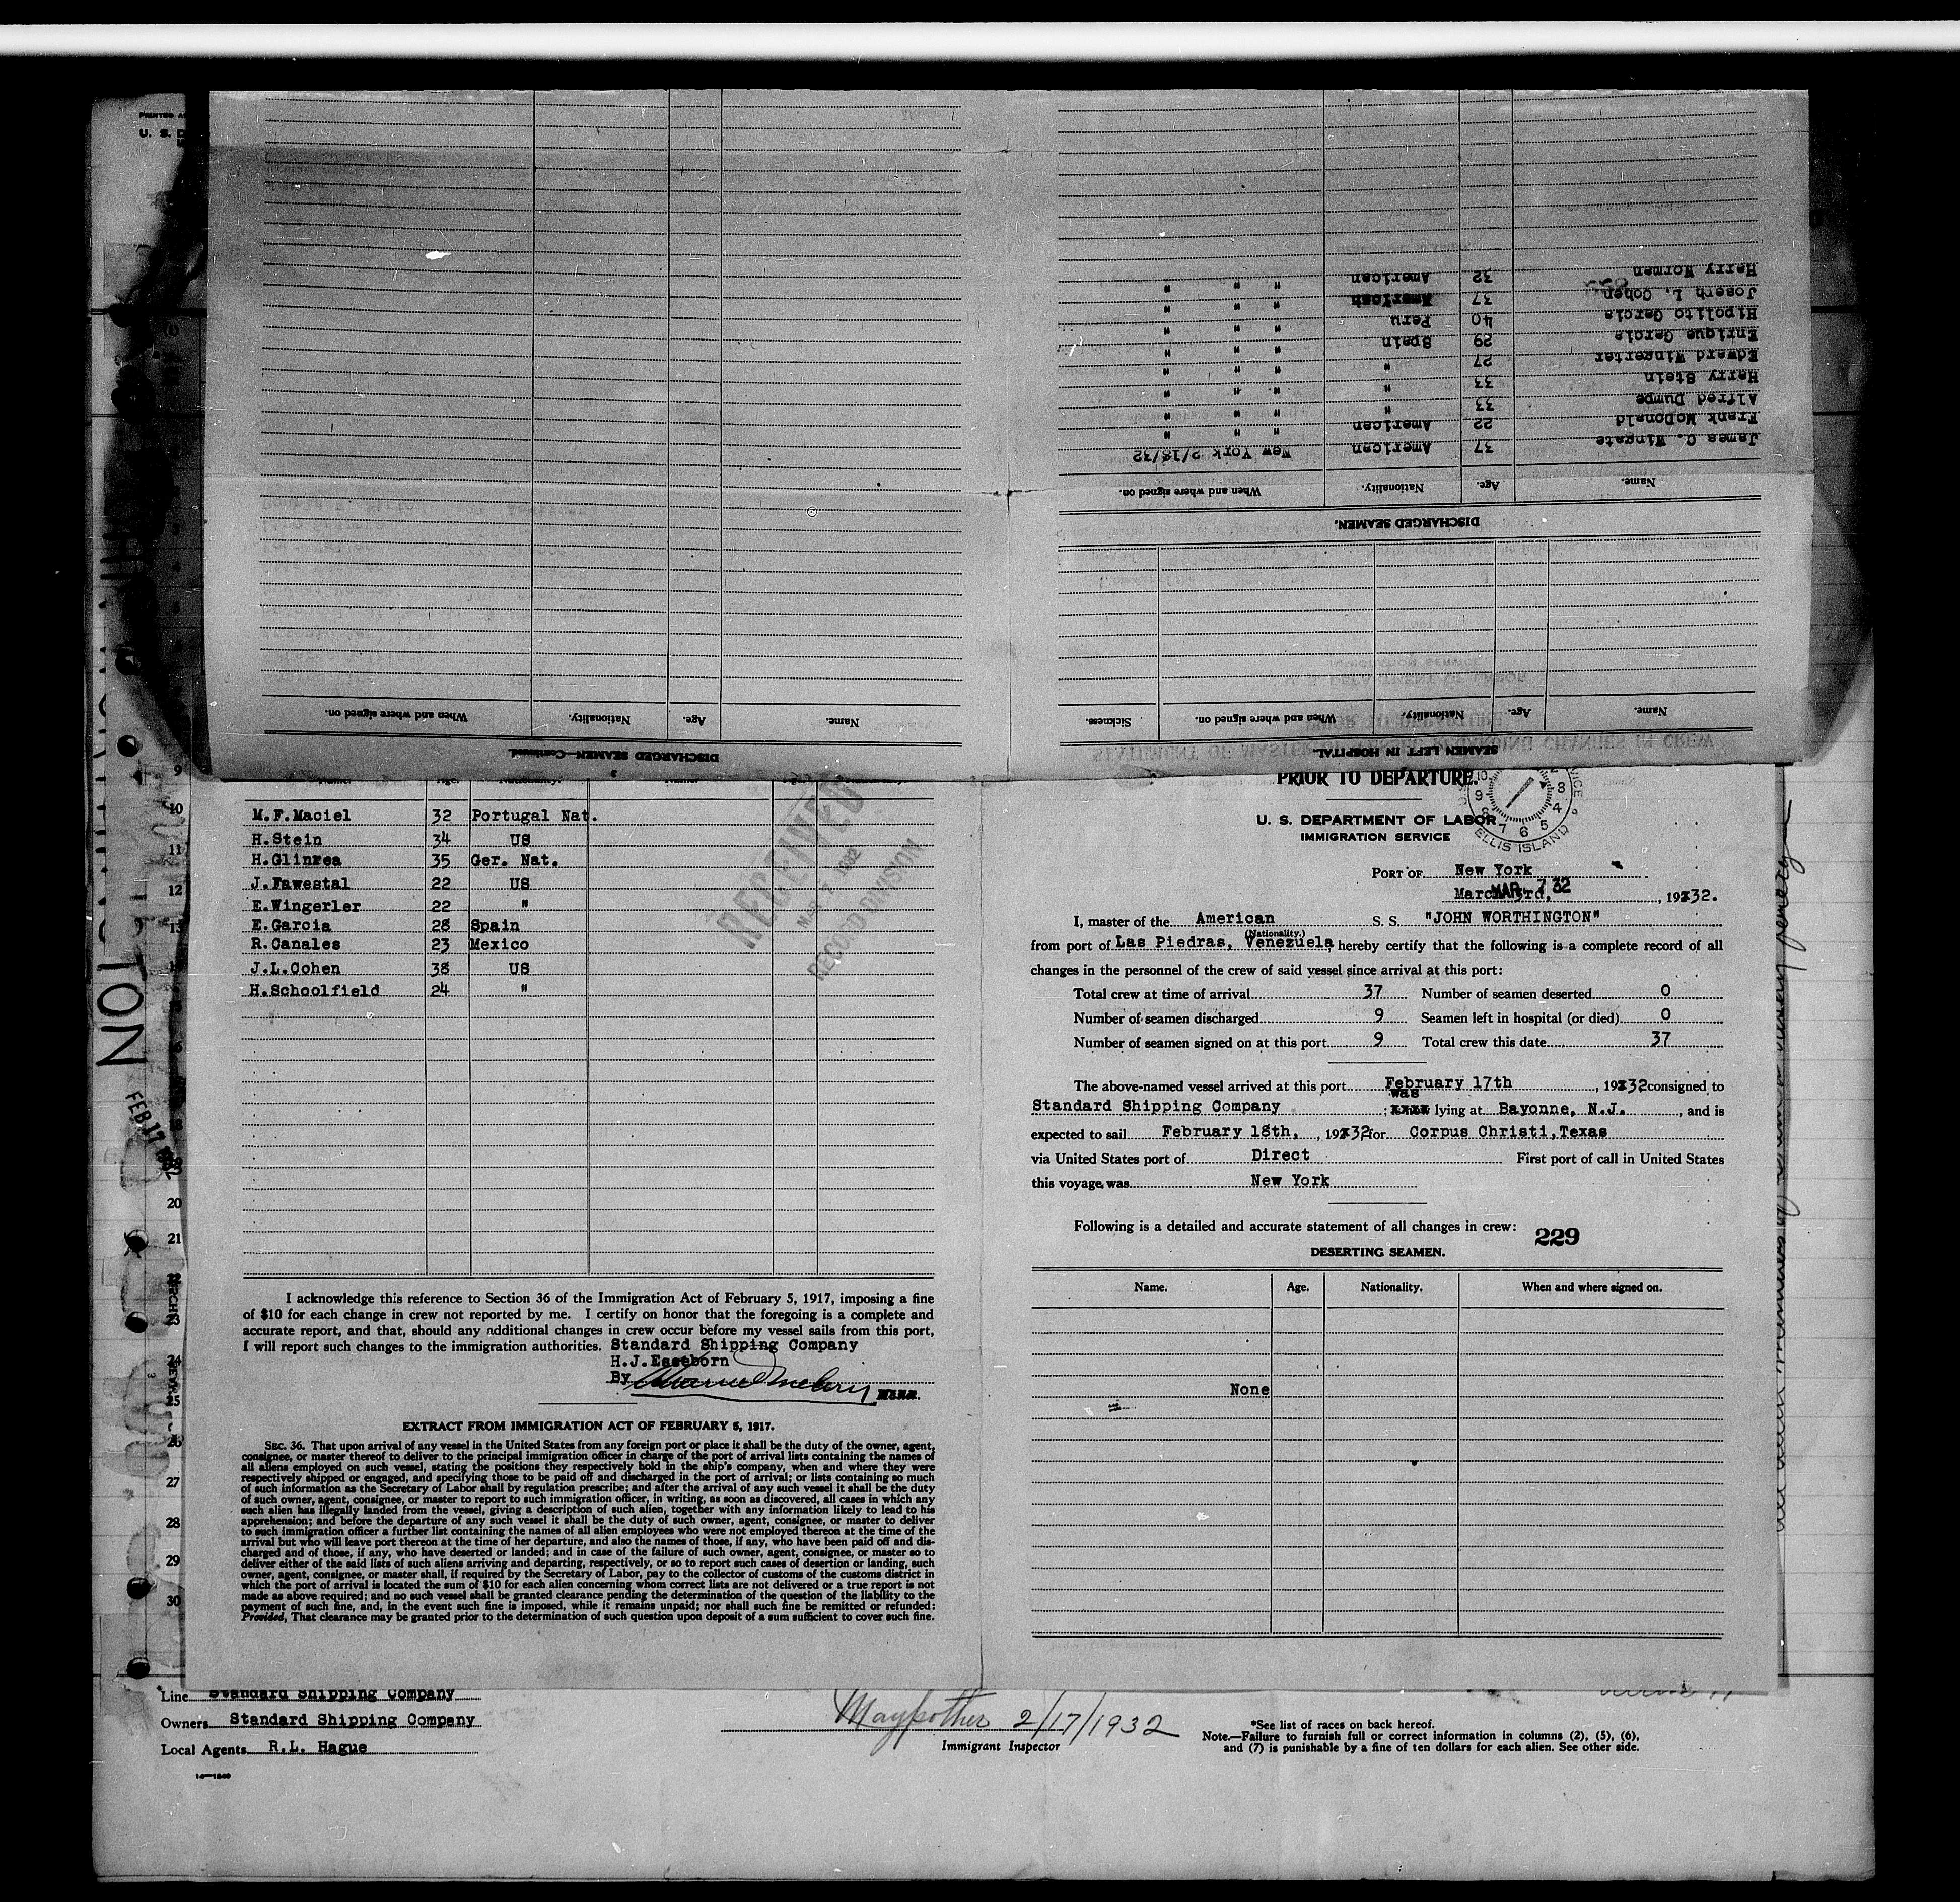 PRINTED
U. S. D
Harry Norman 32 American " " "
Joseph L. Cohen 37 American " " "
Hipolito Garcia 40 Peru " " "
Enrique Garcia 29 Spain " " "
Edward Wingerter 27 " " " "
Harry Stein 33 " " " "
Alfred Dumpe 33 " " " "
Frank McDonald 22 American " " "
James C. Wingate 37 American New York 2/18/32
Name. Age. Nationality. When and where signed on.
DISCHARGED SEAMEN.
Name. Age. Nationality. When and where signed on.
Name. Age. Nationality. When and where signed on. Sickness.
DISCHARGED SEAMEN—Continued
3
SEAMEN LEFT IN HOSPITAL.
M.F.Maciel 32 Portugal Nat.
H.Stein 34 US
H.Glinrea 35 Ger. Nat.
J.Fawestal 22 US
E.Wingerler 22 "
E.Garcia 28 Spain
R.Canales 23 Mexico
J.L.Cohen 38 US
H.Schoolfield 24 "
RECEIVED
MAR 7 1932
RECORD DIVISION
I acknowledge this reference to Section 36 of the Immigration Act of February 5, 1917, imposing a fine
of $10 for each change in crew not reported by me. I certify on honor that the foregoing is a complete and
accurate report, and that, should any additional changes in crew occur before my vessel sails from this port,
I will report such changes to the immigration authorities. Standard Shipping Company
H.J.Esseborn
By
EXTRACT FROM IMMIGRATION ACT OF FEBRUARY 5, 1917.
SEC. 36. That upon arrival of any vessel in the United States from any foreign port or place it shall be the duty of the owner, agent,
consignee, or master thereof to deliver to the principal immigration officer in charge of the port of arrival lists containing the names of
all aliens employed on such vessel, stating the positions they respectively hold in the ship's company, when and where they were
respectively shipped or engaged, and specifying those to be paid off and discharged in the port of arrival; or lists containing so much
of such information as the Secretary of Labor shall by regulation prescribe; and after the arrival of any such vessel it shall be the duty
of such owner, agent, consignee, or master to report to such immigration officer, in writing, as soon as discovered, all cases in which any
such alien has illegally landed from the vessel, giving a description of such alien, together with any information likely to lead to his
apprehension; and before the departure of any such vessel it shall be the duty of such owner, agent, consignee, or master to deliver
to such immigration officer a further list containing the names of all alien employees who were not employed thereon at the time of the
arrival but who will leave port thereon at the time of her departure, and also the names of those, if any, who have been paid off and dis-
charged and of those, if any, who have deserted or landed; and in case of the failure of such owner, agent, consignee, or master so to
deliver either of the said lists of such aliens arriving and departing, respectively, or so to report such cases of desertion or landing, such
owner, agent, consignee, or master shall, if required by the Secretary of Labor, pay to the collector of customs of the customs district in
which the port of arrival is located the sum of $10 for each alien concerning whom correct lists are not delivered or a true report is not
made as above required; and no such vessel shall be granted clearance pending the determination of the question of the liability to the
payment of such fine, and, in the event such fine is imposed, while it remains unpaid; nor shall such fine be remitted or refunded:
Provided, That clearance may be granted prior to the determination of such question upon deposit of a sum sufficient to cover such fine.
PRIOR TO DEPARTURE.
ELLIS ISLAND
U. S. DEPARTMENT OF LABOR
IMMIGRATION SERVICE
PORT OF New York
March 3rd, MAR 7 32, 1932.
I, master of the American S. S. "JOHN WORTHINGTON"
(Nationality.)
from port of Las Piedras, Venezuela, hereby certify that the following is a complete record of all
changes in the personnel of the crew of said vessel since arrival at this port:
Total crew at time of arrival 37 Number of seamen deserted 0
Number of seamen discharged 9 Seamen left in hospital (or died) 0
Number of seamen signed on at this port 9 Total crew this date 37
The above-named vessel arrived at this port February 17th, 1932 consigned to
Standard Shipping Company; was lying at Bayonne, N.J., and is
expected to sail February 18th, 1932 for Corpus Christi, Texas
via United States port of Direct First port of call in United States
this voyage was New York
Following is a detailed and accurate statement of all changes in crew:
229
DESERTING SEAMEN.
Name. Age. Nationality. When and where signed on.
None
9
10
11
12
13
20
21
27
28
29
30
NOT
FEB 17
Line Standard Shipping Company
Owners Standard Shipping Company
Local Agents R.L. Hague
Maypother 2/17/1932
Immigrant Inspector
*See list of races on back hereof.
Note.—Failure to furnish full or correct information in columns (2), (5), (6),
and (7) is punishable by a fine of ten dollars for each alien. See other side.